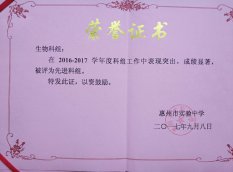 荣誉证书
生物科组：
在 2016-2017 学年度科组工作中表现突出，成绩显著，
被评为先进科组。
特发此证，以资鼓励。
惠州市实验中学
二〇一七年九月八日